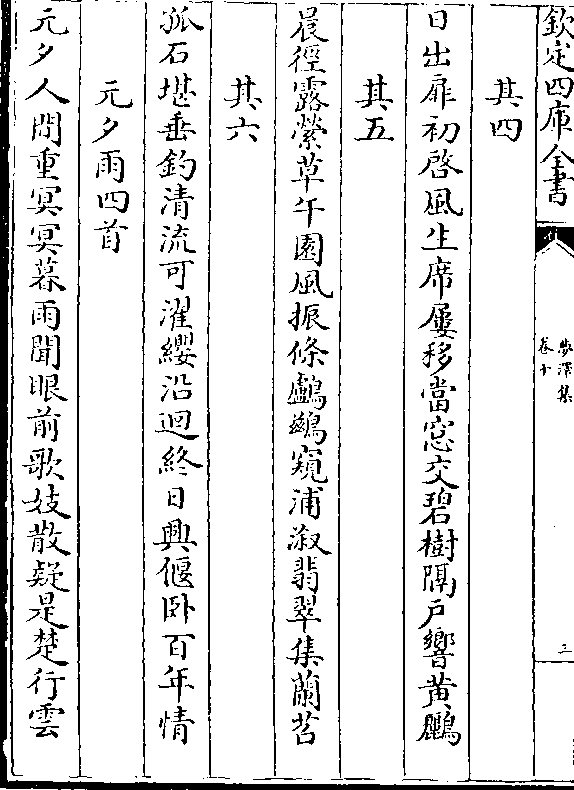 欽定四庫全書
歩澤集
卷十
三
其四
日出扉初啓風生席屢移當窓交碧樹隔戸響黄鸝
其五
晨徑露縈草午園風振條鸕鷀窺浦溆翡翠集蘭苕
其六
孤石堪垂釣清流可濯纓沿迴終日興偃卧百年情
元夕雨四首
元夕人間重冥冥暮雨聞眼前歌妓散疑是楚行雲